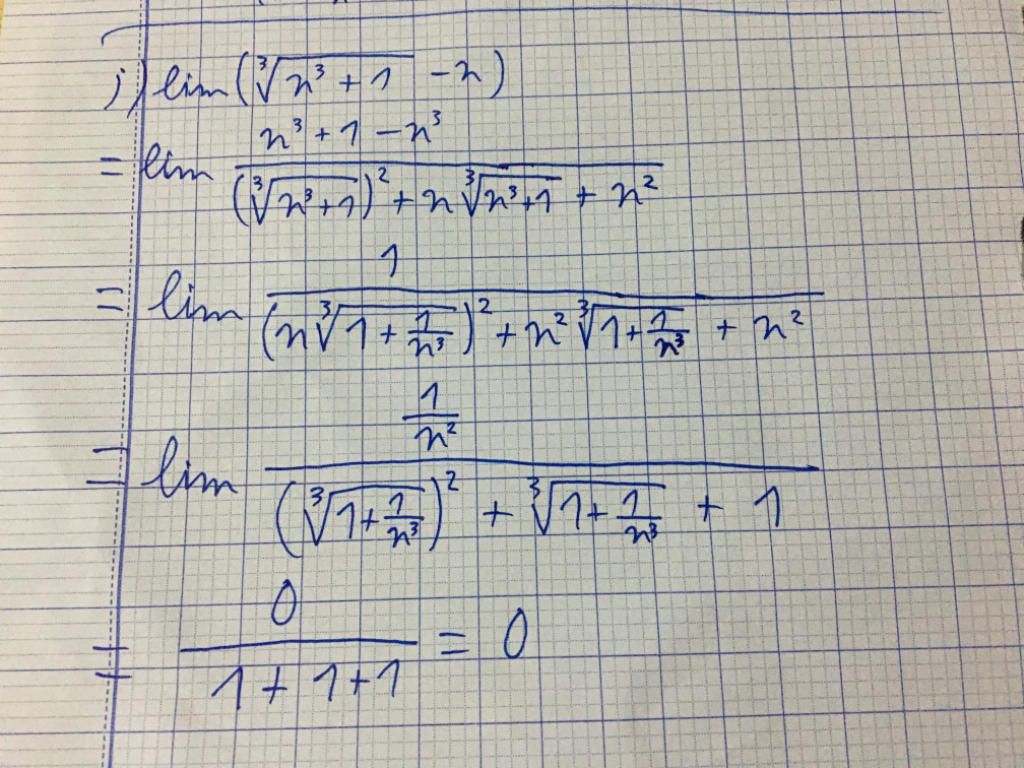 j) lim (∛(n³ + 1) - n)
= lim (n³ + 1 - n³) / ((∛(n³+1))² + n∛(n³+1) + n²)
= lim 1 / ((n∛(1 + 1/n³))² + n²∛(1 + 1/n³) + n²)
= lim (1/n²) / ((∛(1 + 1/n³))² + ∛(1 + 1/n³) + 1)
= 0 / (1 + 1 + 1) = 0